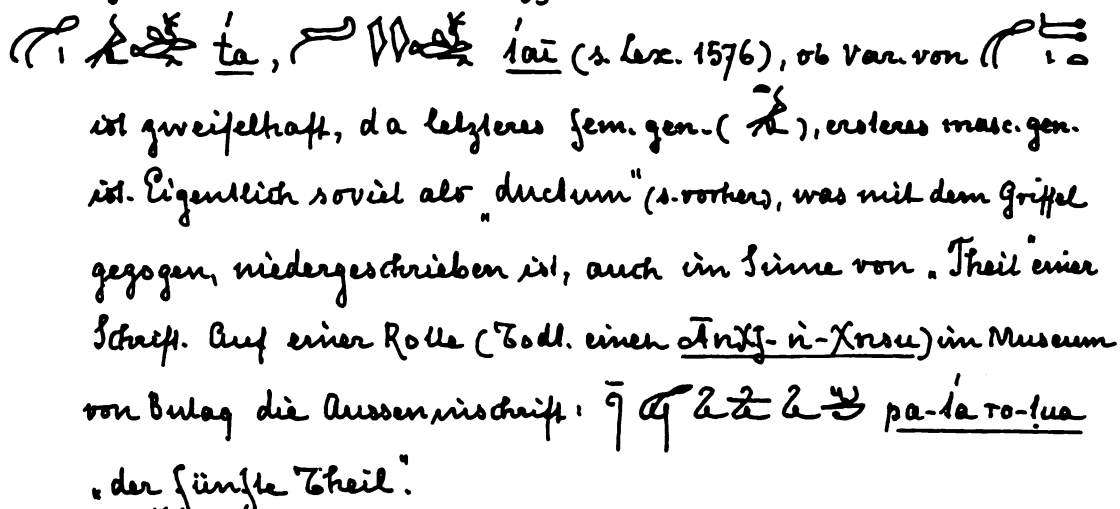 t́a, t́aī (s. Lex. 1576), ob Var. von
ist zweifelhaft, da letzteres fem. gen. ( ), ersteres masc. gen.
ist. Eigentlich soviel als „ductum“ (s. vorher), was mit dem Griffel
gezogen, niedergeschrieben ist, auch im Sinne von „Theil“ einer
Schrift. Auf einer Rolle (Todt. einer ) im Museum
von Bulaq die Aussenninschrift: pa-t́a ro-ṭua
„der fünfte Theil“.